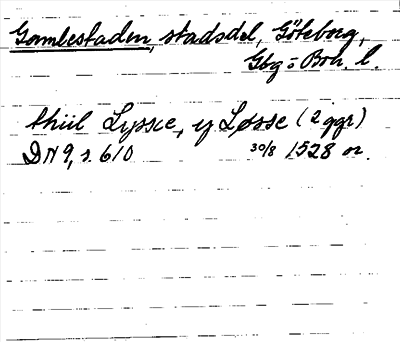 Gamlestaden, stadsdel, Göteborg,
Gbg o Boh. l.
thiil Lyssæ, y Løsse (2 ggr)
DN 9, s. 610 30/8 1528 or.